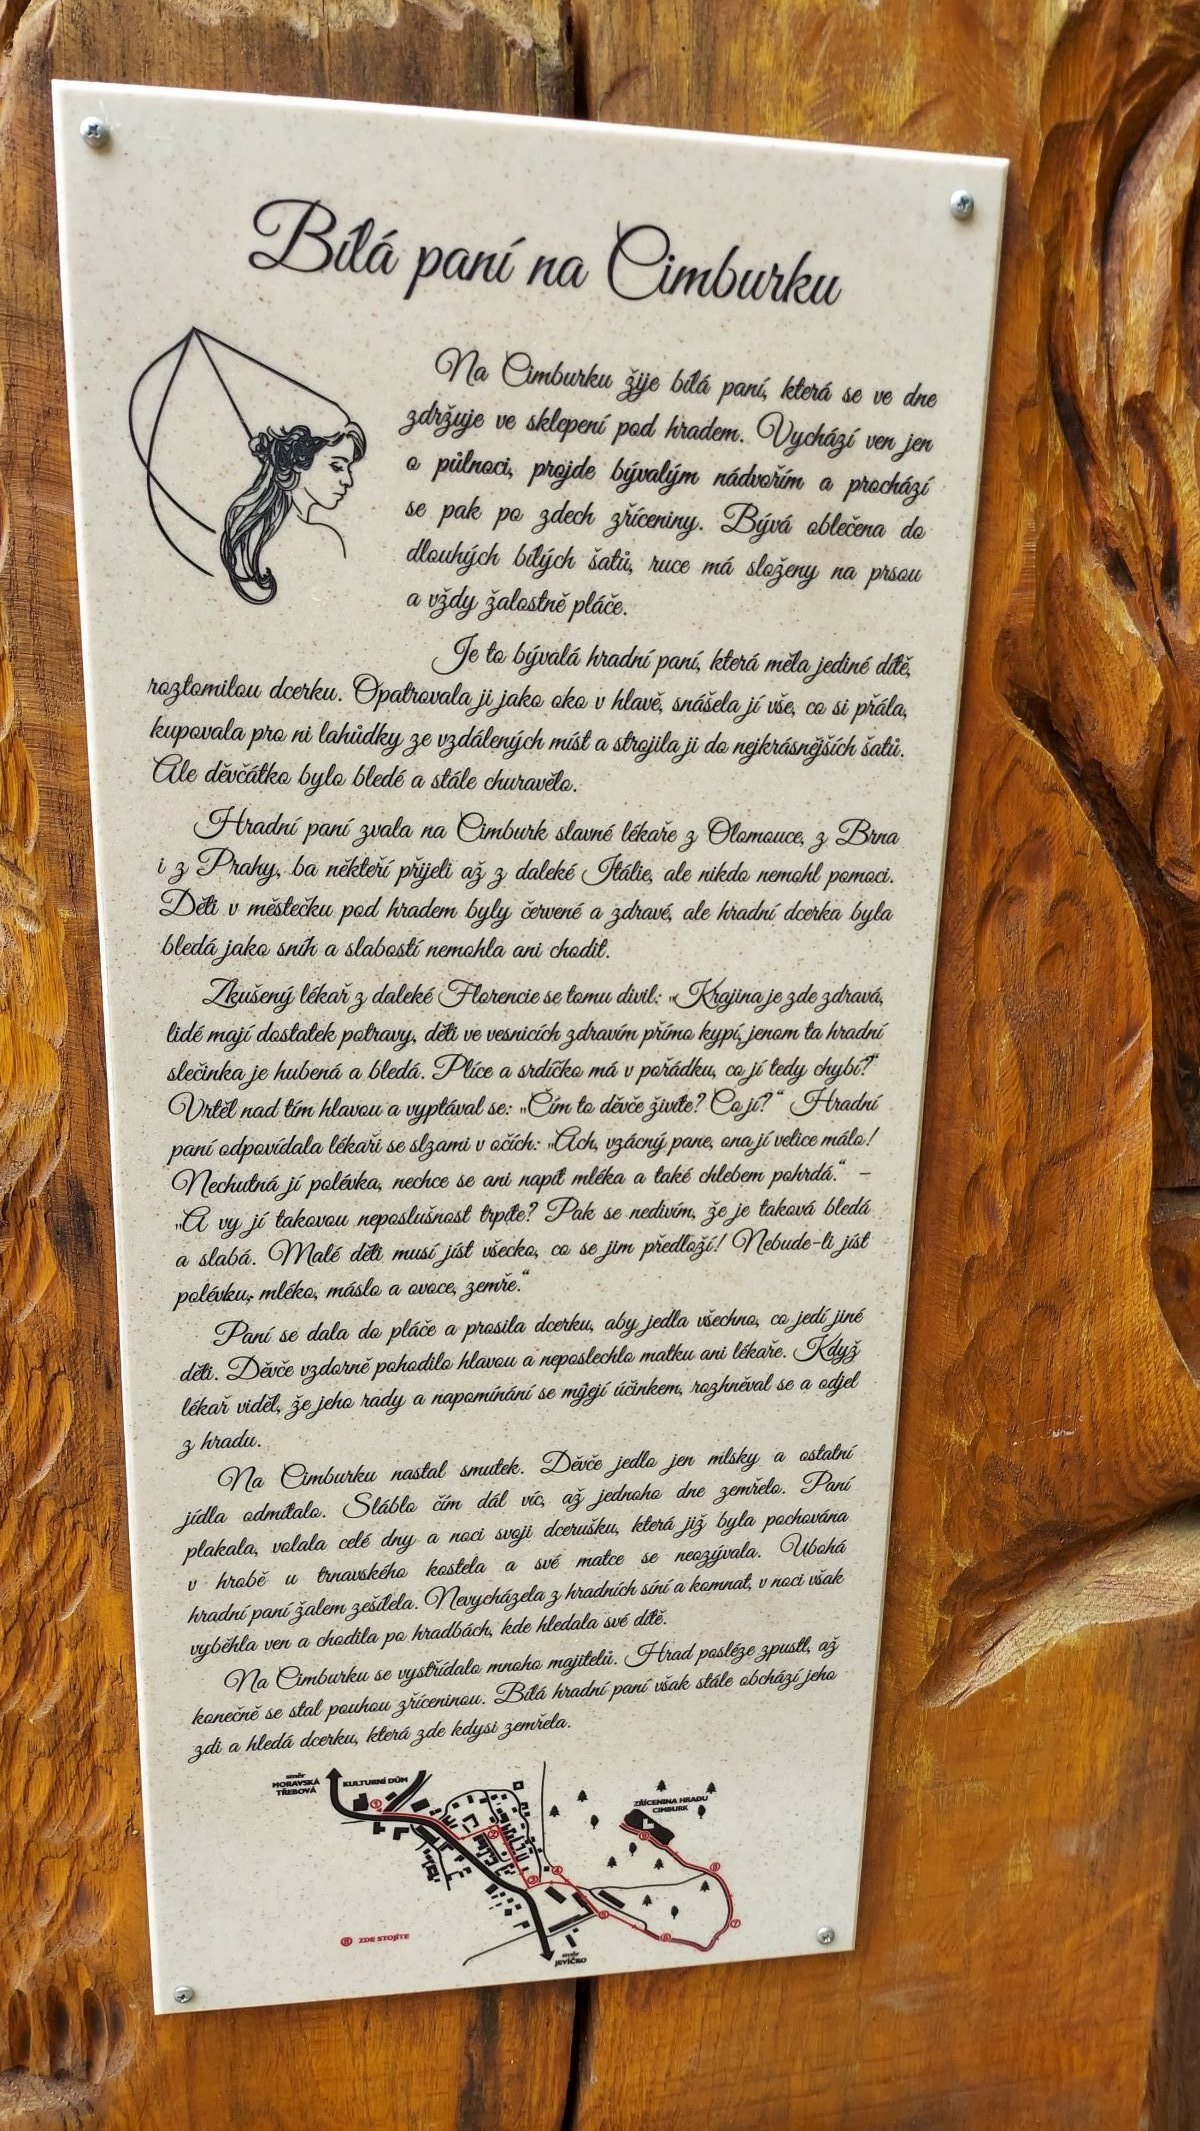 Bílá paní na Cimburku
Na Cimburku žije bílá paní, která se ve dne
zdržuje ve sklepení pod hradem. Vychází ven jen
o půlnoci, projde bývalým nádvořím a prochází
se pak po zdech zříceniny. Bývá oblečena do
dlouhých bílých šatů, ruce má složeny na prsou
a vždy žalostně pláče.
Je to bývalá hradní paní, která měla jediné dítě,
roztomilou dcerku. Opatrovala ji jako oko v hlavě, snášela jí vše, co si přála,
kupovala pro ni lahůdky ze vzdálených míst a strojila ji do nejkrásnějších šatů.
Ale děvčátko bylo bledé a stále churavělo.
Hradní paní zvala na Cimburk slavné lékaře z Olomouce, z Brna
i z Prahy, ba někteří přijeli až z daleké Itálie, ale nikdo nemohl pomoci.
Děti v městečku pod hradem byly červené a zdravé, ale hradní dcerka byla
bledá jako sníh a slabostí nemohla ani chodit.
Zkušený lékař z daleké Florencie se tomu divil: „Krajina je zde zdravá,
lidé mají dostatek potravy, děti ve vesnicích zdravím přímo kypí, jenom ta hradní
slečinka je hubená a bledá. Plíce a srdíčko má v pořádku, co jí tedy chybí?“
Vrtěl nad tím hlavou a vyptával se: „Čím to děvče živíte? Co jí?“ Hradní
paní odpovídala lékaři se slzami v očích: „Ach, vzácný pane, ona jí velice málo!
Nechutná jí polévka, nechce se ani napít mléka a také chlebem pohrdá.“ –
„A vy jí takovou neposlušnost trpíte? Pak se nedivím, že je taková bledá
a slabá. Malé děti musí jíst všecko, co se jim předloží! Nebude-li jíst
polévku, mléko, máslo a ovoce, zemře.“
Paní se dala do pláče a prosila dcerku, aby jedla všechno, co jedí jiné
děti. Děvče vzdorně pohodilo hlavou a neposlechlo matku ani lékaře. Když
lékař viděl, že jeho rady a napomínání se míjejí účinkem, rozhněval se a odjel
z hradu.
Na Cimburku nastal smutek. Děvče jedlo jen mlsky a ostatní
jídla odmítalo. Sláblo čím dál víc, až jednoho dne zemřelo. Paní
plakala, volala celé dny a noci svoji dcerušku, která již byla pochována
v hrobě u trnavského kostela a své matce se neozývala. Ubohá
hradní paní žalem zešílela. Nevycházela z hradních síní a komnat, v noci však
vyběhla ven a chodila po hradbách, kde hledala své dítě.
Na Cimburku se vystřídalo mnoho majitelů. Hrad posléze zpustl, až
konečně se stal pouhou zříceninou. Bílá hradní paní však stále obchází jeho
zdi a hledá dcerku, která zde kdysi zemřela.
směr
MORAVSKÁ
TŘEBOVÁ
KULTURNÍ DŮM
ZŘÍCENINA HRADU
CIMBURK
1
2
3
4
5
6
7
8
ZDE STOJÍTE
směr
JEVÍČKO